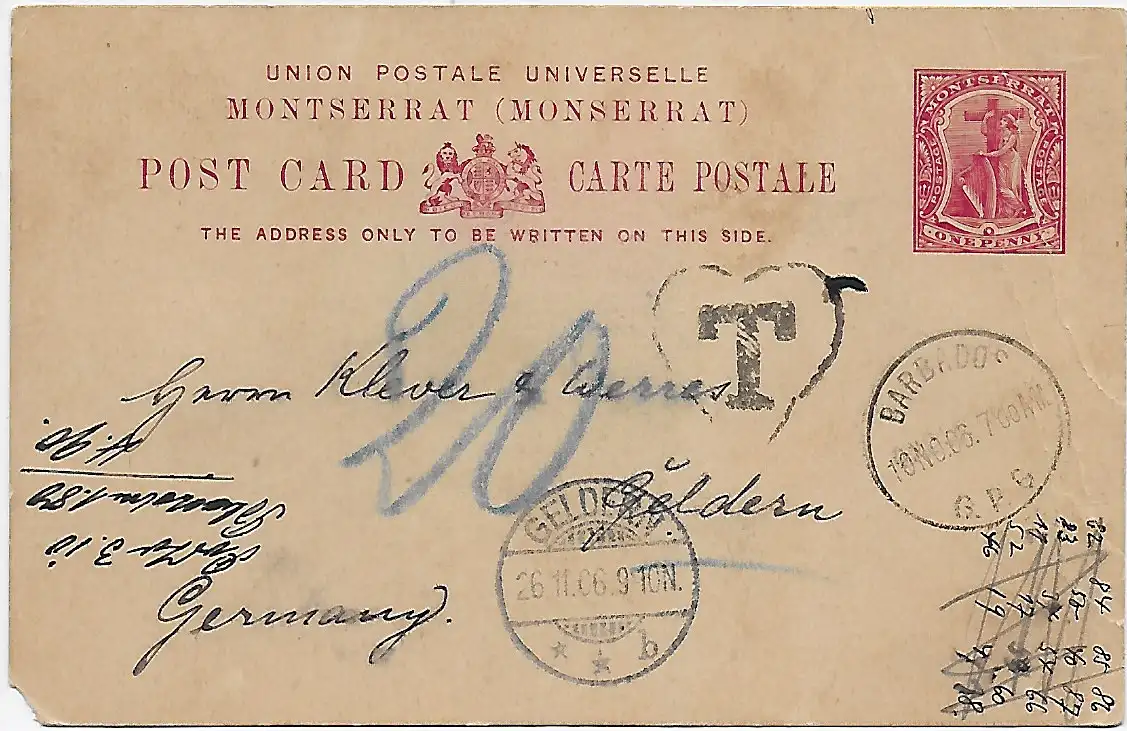 UNION POSTALE UNIVERSELLE
MONTSERRAT (MONSERRAT)
POST CARD CARTE POSTALE
THE ADDRESS ONLY TO BE WRITTEN ON THIS SIDE.
MONTSERRAT
POSTAGE POSTAGE
ONE PENNY
20
T
Herrn Klever & Werres
Geldern
Germany.
BARBADOS
10NO.06.7 00AM.
G.P.O
GELDERN.
26.11.06.9-10N.
* * b
4.90.
1.89
3.13
82 84 85 86